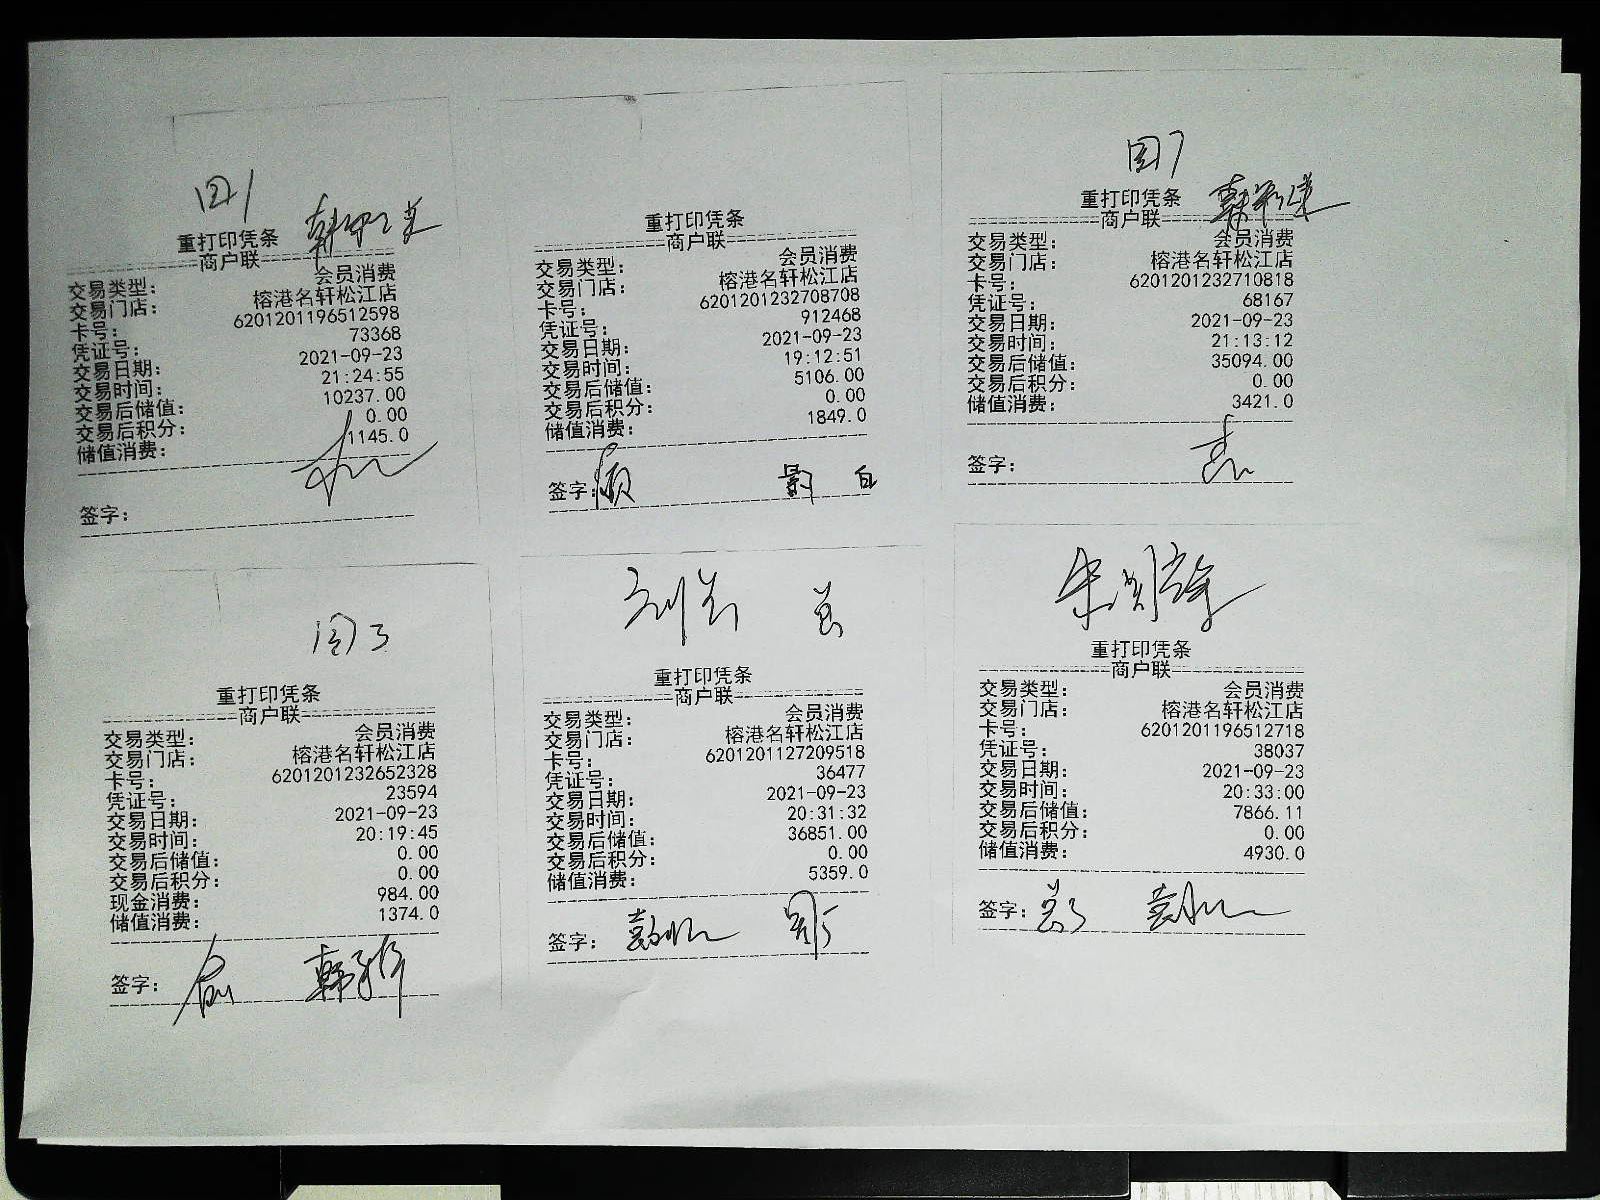 重打印凭条
商户联
交易类型: 会员消费
交易门店: 榕港名轩松江店
卡号: 6201201196512598
凭证号: 73368
交易日期: 2021-09-23
交易时间: 21:24:55
交易后储值: 10237.00
交易后积分: 0.00
储值消费: 1145.0
签字:
重打印凭条
商户联
交易类型: 会员消费
交易门店: 榕港名轩松江店
卡号: 6201201232708708
凭证号: 912468
交易日期: 2021-09-23
交易时间: 19:12:51
交易后储值: 5106.00
交易后积分: 0.00
储值消费: 1849.0
签字:
重打印凭条
商户联
交易类型: 会员消费
交易门店: 榕港名轩松江店
卡号: 6201201232710818
凭证号: 68167
交易日期: 2021-09-23
交易时间: 21:13:12
交易后储值: 35094.00
交易后积分: 0.00
储值消费: 3421.0
签字:
重打印凭条
商户联
交易类型: 会员消费
交易门店: 榕港名轩松江店
卡号: 6201201232652328
凭证号: 23594
交易日期: 2021-09-23
交易时间: 20:19:45
交易后储值: 0.00
交易后积分: 0.00
现金消费: 984.00
储值消费: 1374.0
签字:
重打印凭条
商户联
交易类型: 会员消费
交易门店: 榕港名轩松江店
卡号: 6201201127209518
凭证号: 36477
交易日期: 2021-09-23
交易时间: 20:31:32
交易后储值: 36851.00
交易后积分: 0.00
储值消费: 5359.0
签字:
重打印凭条
商户联
交易类型: 会员消费
交易门店: 榕港名轩松江店
卡号: 6201201196512718
凭证号: 38037
交易日期: 2021-09-23
交易时间: 20:33:00
交易后储值: 7866.11
交易后积分: 0.00
储值消费: 4930.0
签字: